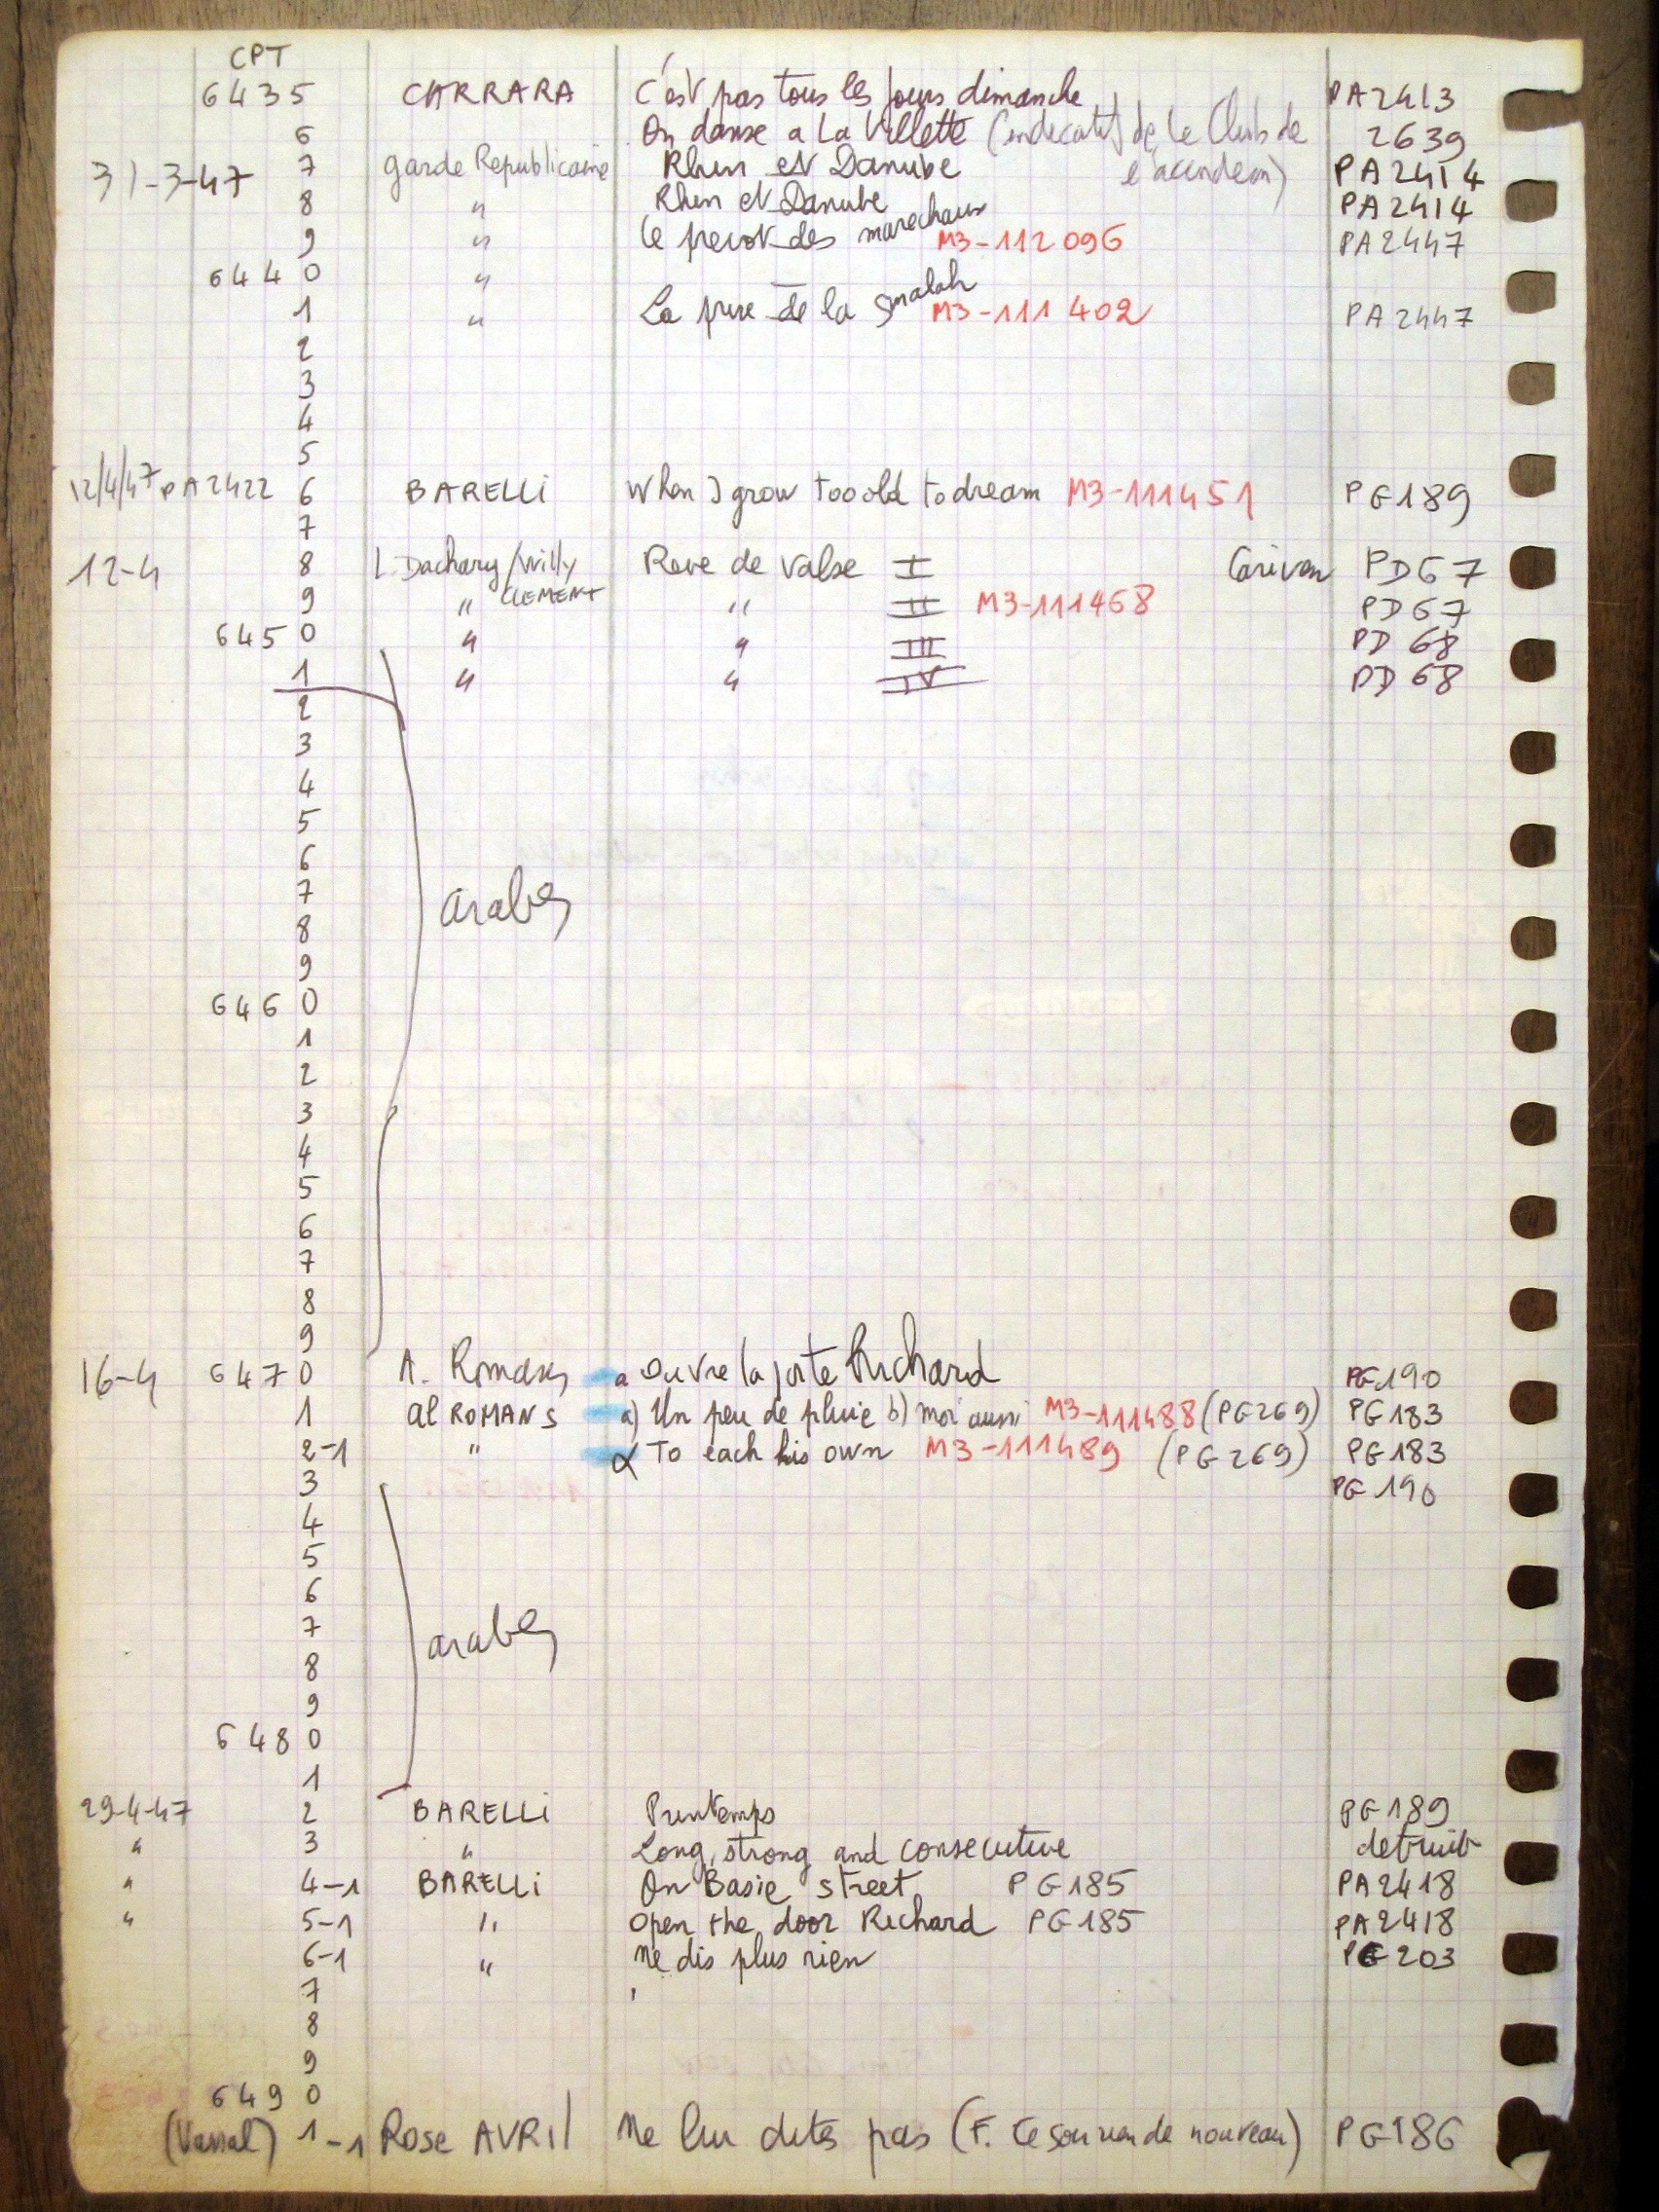 CPT
6435 CARRARA C'est pas tous les jours dimanche PA2413
6 On danse a La Villette (indicatif de Le Club de 2639
31-3-47 7 garde Republicaine Rhin et Danube l'accordeon) PA2414
8 " Rhin et Danube PA2414
9 " Le prevot des marechaux M3-112096 PA2447
6440 "
1 " La prise de la Smalah M3-111402 PA2447
2
3
4
5
12/4/47 PA2422 6 BARELLI When I grow too old to dream M3-111451 PG189
7
12-4 8 L. Dachary/Willy Reve de Valse I Cariven PD67
9 " CLEMENT " II M3-111468 PD67
6450 " " III PD 68
1 " " IV PD 68
2
3
4
5
6
7
8 arabes
9
6460
1
2
3
4
5
6
7
8
9
16-4 6470 A. Romans a Ouvre la porte Richard PG190
1 Al ROMANS a) Un peu de pluie b) moi aussi M3-111488 (PG269) PG183
2-1 " α To each his own M3-111489 (PG269) PG183
3 PG190
4
5
6
7 arabes
8
9
6480
1
29-4-47 2 BARELLI Printemps PG189
" 3 " Long, strong and consecutive detruit
" 4-1 BARELLI On Basie street PG185 PA2418
" 5-1 " Open the door Richard PG185 PA2418
6-1 " Ne dis plus rien PG203
7
8
9
6490
(Vassal) 1-1 Rose AVRIL Ne lui dites pas (F. Ce souvien de nouveau) PG186